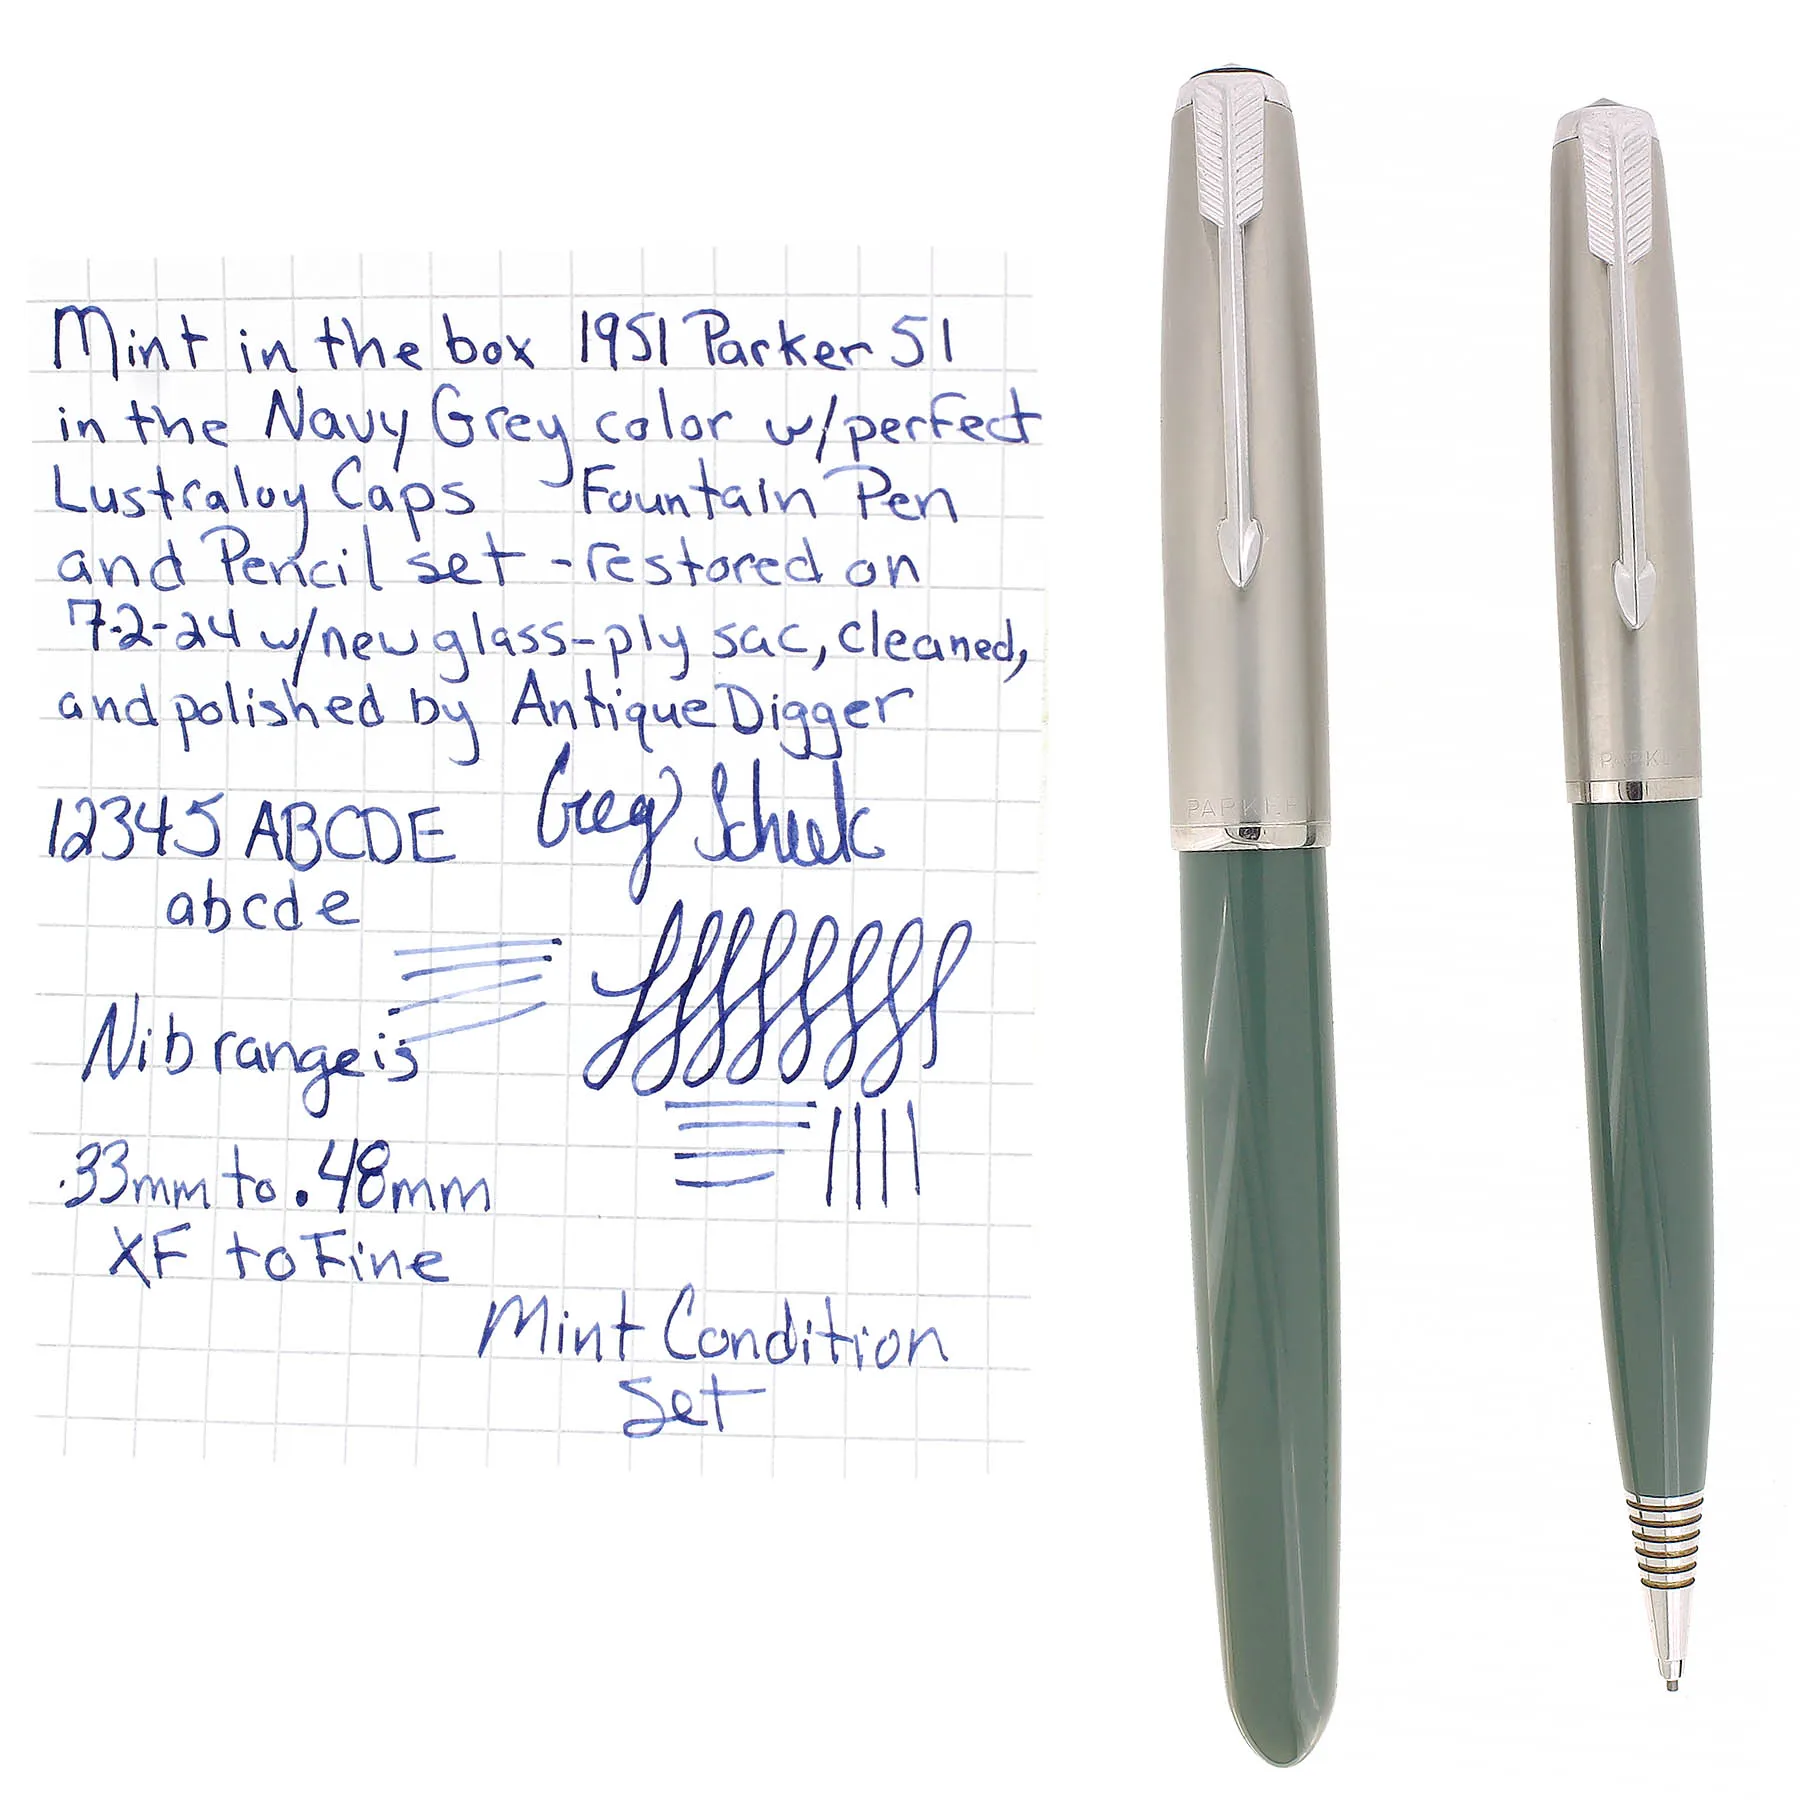 Mint in the box 1951 Parker 51
in the Navy Grey color w/perfect
Lustraloy Caps Fountain Pen
and Pencil set - restored on
7-2-24 w/new glass-ply sac, cleaned,
and polished by AntiqueDigger
Greg Scheek
12345 ABCDE
abcde
Nib range is
.33mm to .48mm
XF to Fine
Mint Condition
Set
PARKER
PARKER